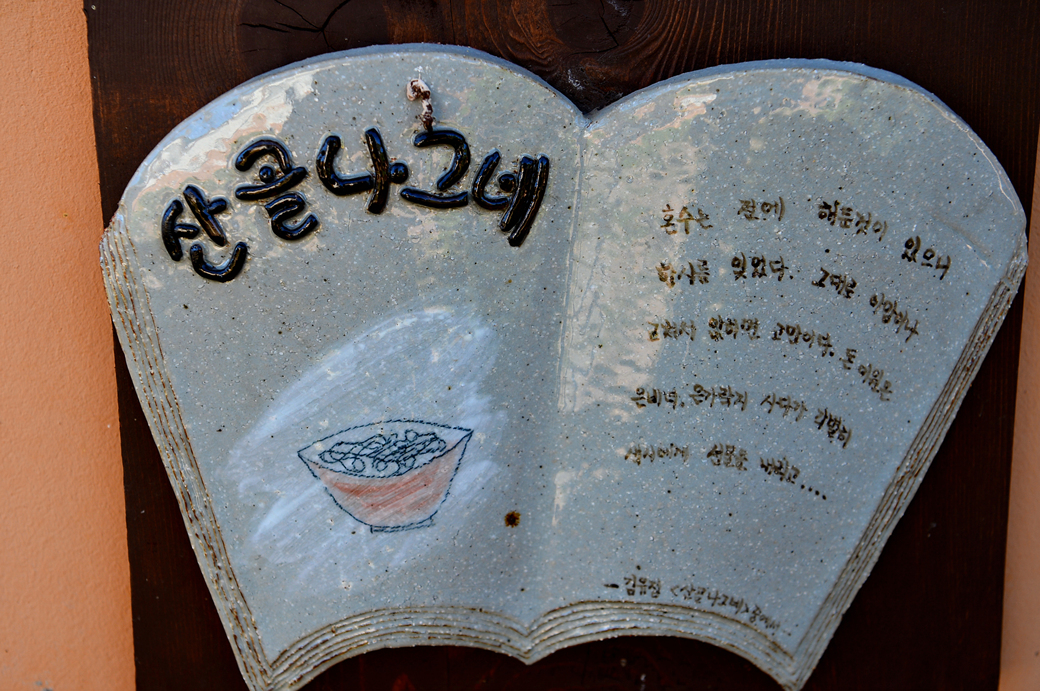 산골나그네
혼수는 전에 해둔것이 있으니
한시름 잊었다. 그대로 이앙이나
고쳐서 입히면 고만이다. 돈 이원은
은비녀, 은가락지 사다가 각별히
색시에게 선물은 내리고....
- 김유정 <산골나그네>중에서-